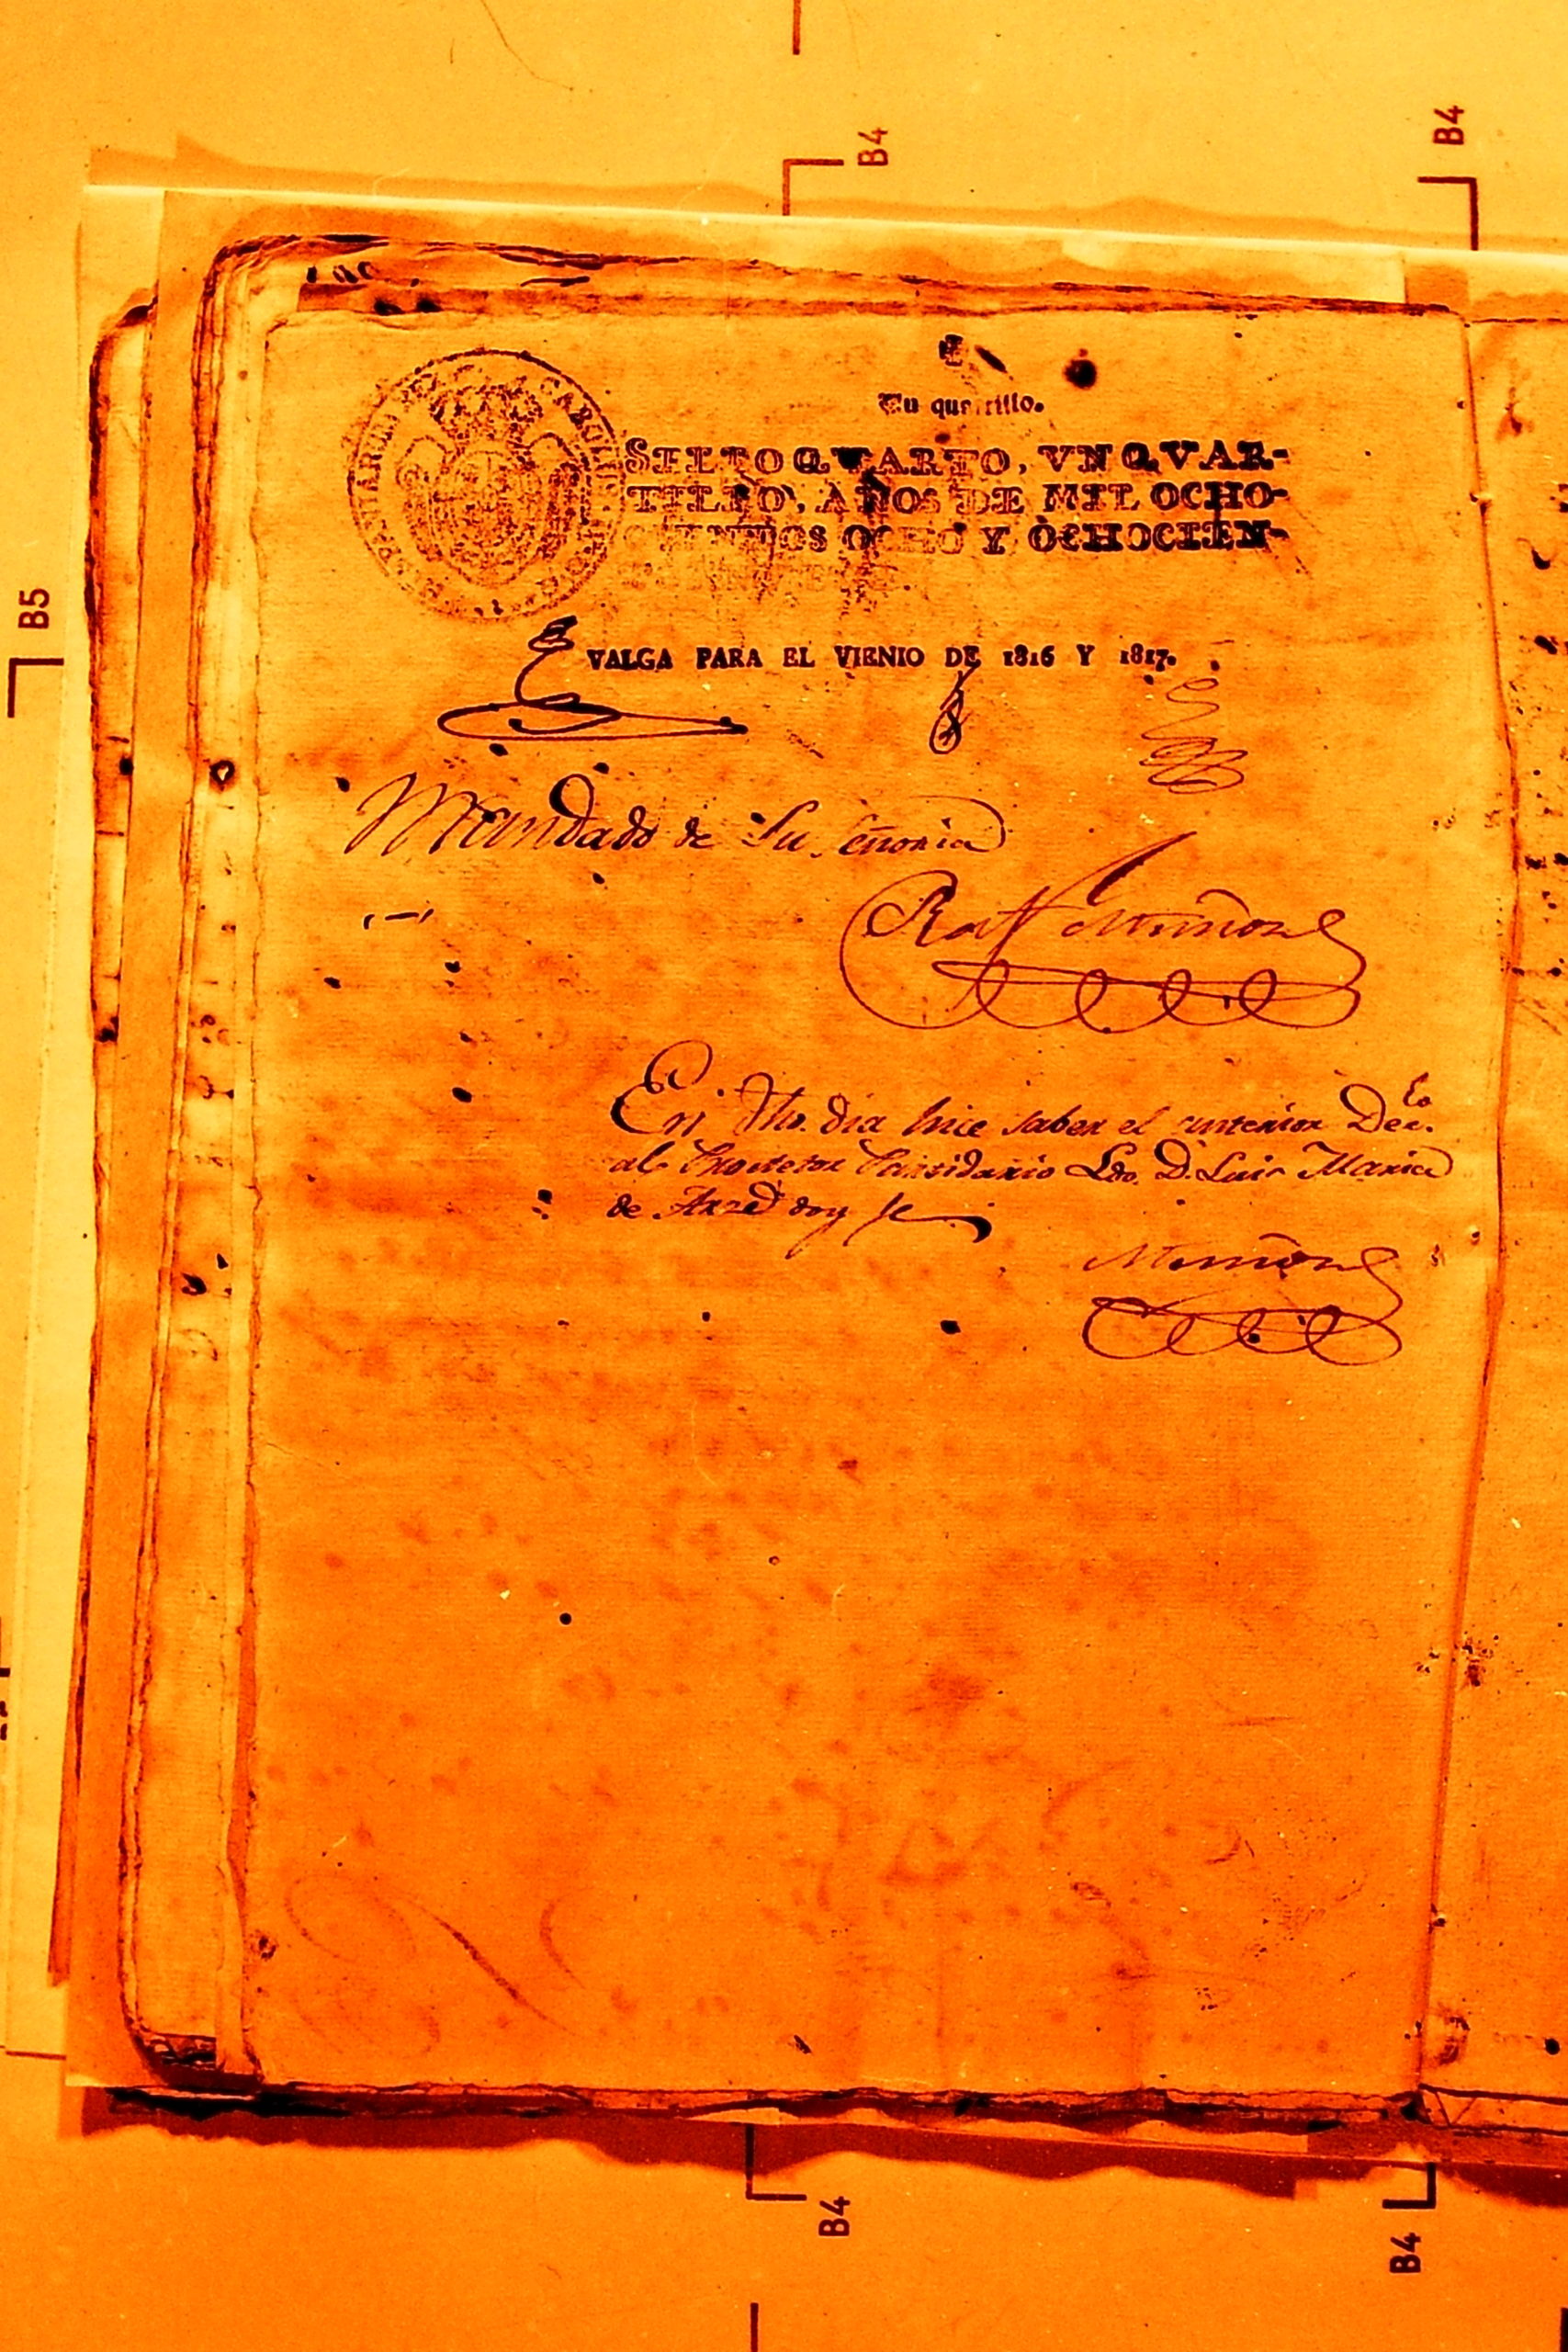 Un quartillo.
SELLO QVARTO, VN QVAR-
TILLO, AÑOS DE MIL OCHO-
CIENTOS OCHO Y OCHOCIEN-
VALGA PARA EL VIENIO DE 1816 Y 1817.
Mandado de Su, eñoria
Raf Muñoz
En dho. dia hice saber el anterior Dec.to
al Protetor Partidario Ldo. D. Luis Maria
de Arze doy fe
Muñoz
B4
B4
B5
B4
B4